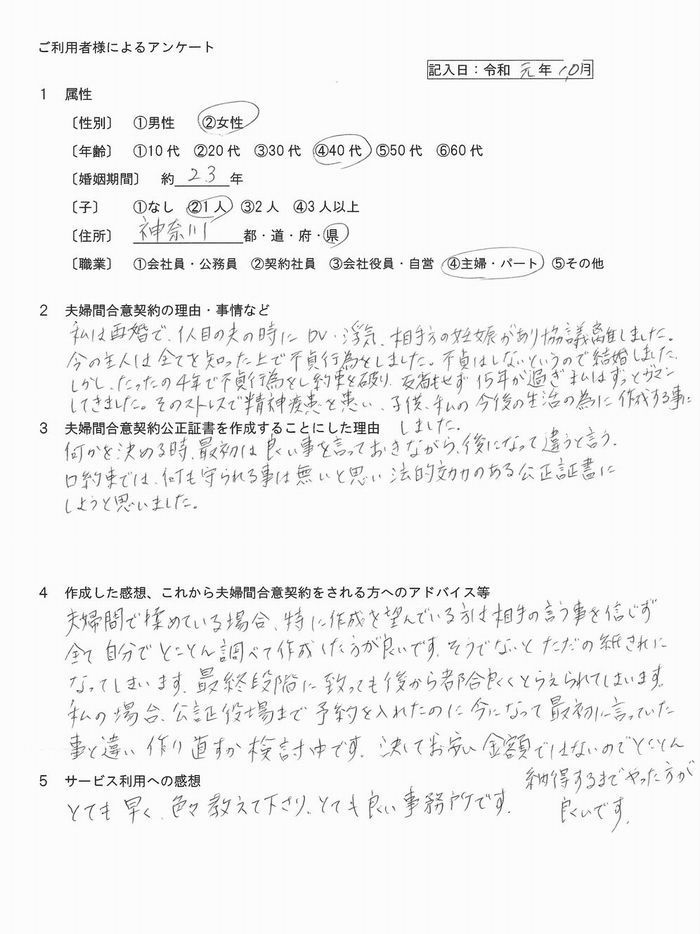 ご利用者様によるアンケート
記入日：令和 元年 10月
1 属性
〔性別〕 ①男性 ②女性
〔年齢〕 ①10代 ②20代 ③30代 ④40代 ⑤50代 ⑥60代
〔婚姻期間〕 約 23 年
〔子〕 ①なし ②1人 ③2人 ④3人以上
〔住所〕 神奈川 都・道・府・県
〔職業〕 ①会社員・公務員 ②契約社員 ③会社役員・自営 ④主婦・パート ⑤その他
2 夫婦間合意契約の理由・事情など
私は再婚で、1人目の夫の時にDV・浮気、相手方の妊娠があり協議離婚しました。
今の主人は全てを知った上で不貞行為をしました。不貞はしないというので結婚しました。
しかし、たったの4年で不貞行為をし約束を破り、反省もせず15年が過ぎ私はずっとガマン
してきました。そのストレスで精神疾患を患い、子供、私の今後の生活の為に作成する事に
しました。
3 夫婦間合意契約公正証書を作成することにした理由
何かを決める時、最初は良い事を言っておきながら、後になって違うと言う。
口約束では、何も守られる事は無いと思い法的効力のある公正証書に
しようと思いました。
4 作成した感想、これから夫婦間合意契約をされる方へのアドバイス等
夫婦間で揉めている場合、特に作成を望んでいる方は相手の言う事を信じず
全て自分でとことん調べて作成したうが良いです。そうでないとただの紙きれに
なってしまいます。最終段階に致っても後から都合良くとらえられてしまいます。
私の場合、公証役場まで予約を入れたのに今になって最初に言っていた
事と違い作り直すか検討中です。決してお安い金額ではないのでとことん
納得するまでやった方が
良いです。
5 サービス利用への感想
とても早く、色々教えて下さり、とても良い事務所です。